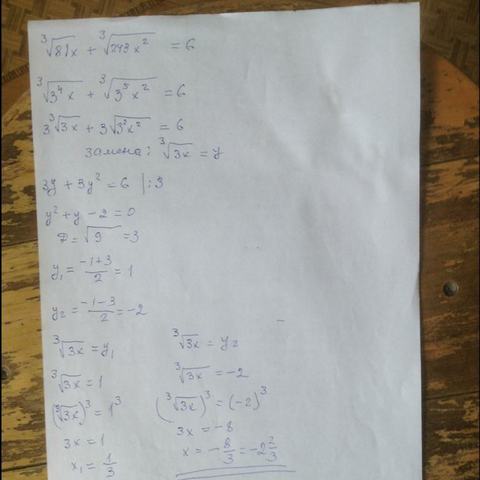 ∛81x + ∛243x² = 6
∛3⁴x + ∛3⁵x² = 6
3∛3x + 3√3²x² = 6
замена: ∛3x = y
3y + 3y² = 6 |:3
y² + y - 2 = 0
D = √9 = 3
y₁ = (-1+3)/2 = 1
y₂ = (-1-3)/2 = -2
∛3x = y₁
∛3x = 1
(∛3x)³ = 1³
3x = 1
x₁ = 1/3
∛3x = y₂
∛3x = -2
(∛3x)³ = (-2)³
3x = -8
x = -8/3 = -2 2/3